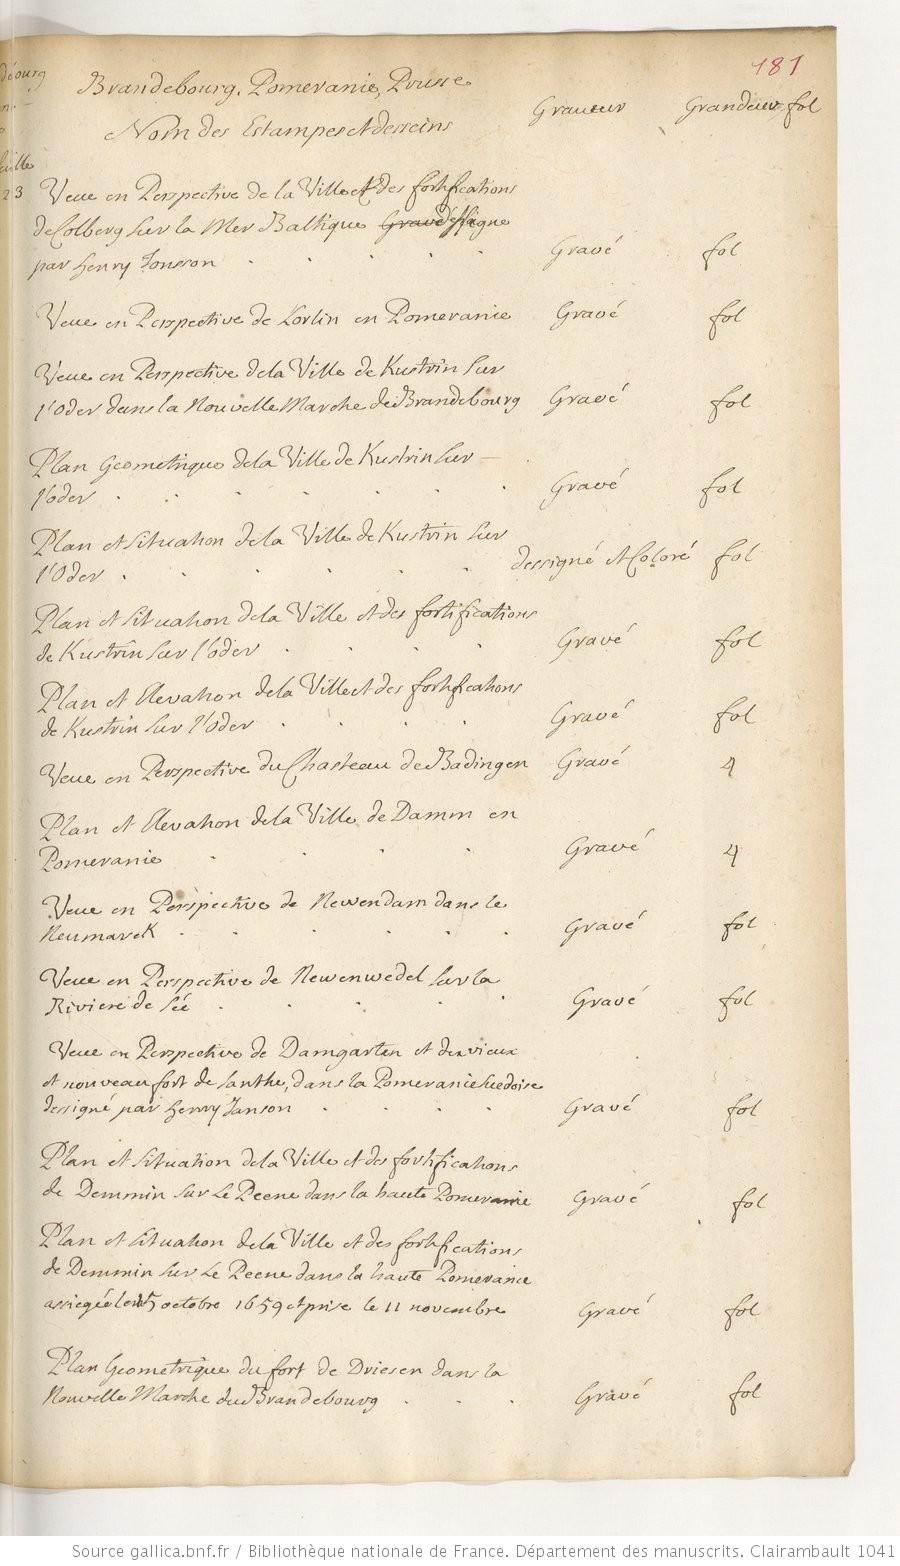 181
Brandebourg, Pomeranie, Prusse
Graueur Grandeur fol
Nom des Estampes et desseins
23
Veue en Perspective de la Ville et des fortifications
de Colberg sur la Mer Baltique Gravé dessigné
par Henry Jonsson Gravé fol
Veue en Perspective de Corlin en Pomeranie Gravé fol
Veue en Perspective de la Ville de Kustrin sur
l'Oder dans la Nouvelle Marche de Brandebourg Gravé fol
Plan Geometrique de la Ville de Kustrin sur
l'oder Gravé fol
Plan et situation de la Ville de Kustrin sur
l'Oder dessigné et Coloré fol
Plan et situation de la Ville et des fortifications
de Kustrin sur l'oder Gravé fol
Plan et Elevation de la Ville et des fortifications
de Kustrin sur l'oder Gravé fol
Veue en Perspective du Chasteau de Badingen Gravé 4
Plan et Elevation de la Ville de Damm en
Pomeranie Gravé 4
Veue en Perspective de Newendam dans le
Neumarck Gravé fol
Veue en Perspective de Newenwedel sur la
Riviere de Sée Gravé fol
Veue en Perspective de Damgarten et des vieux
et nouveau fort de Santhe, dans la Pomeranie suedoise
dessigné par Henry Janson Gravé fol
Plan et situation de la Ville et des fortifications
de Demmin sur Le Peene dans la haute Pomeranie Gravé fol
Plan et situation de la Ville et des fortifications
de Demmin sur Le Peene dans la haute Pomeranie
assiegée le 15 octobre 1659 et prise le 11 novembre Gravé fol
Plan Geometrique du fort de Driesen dans la
Nouvelle Marche du Brandebourg Gravé fol
Source gallica.bnf.fr / Bibliothèque nationale de France. Département des manuscrits. Clairambault 1041